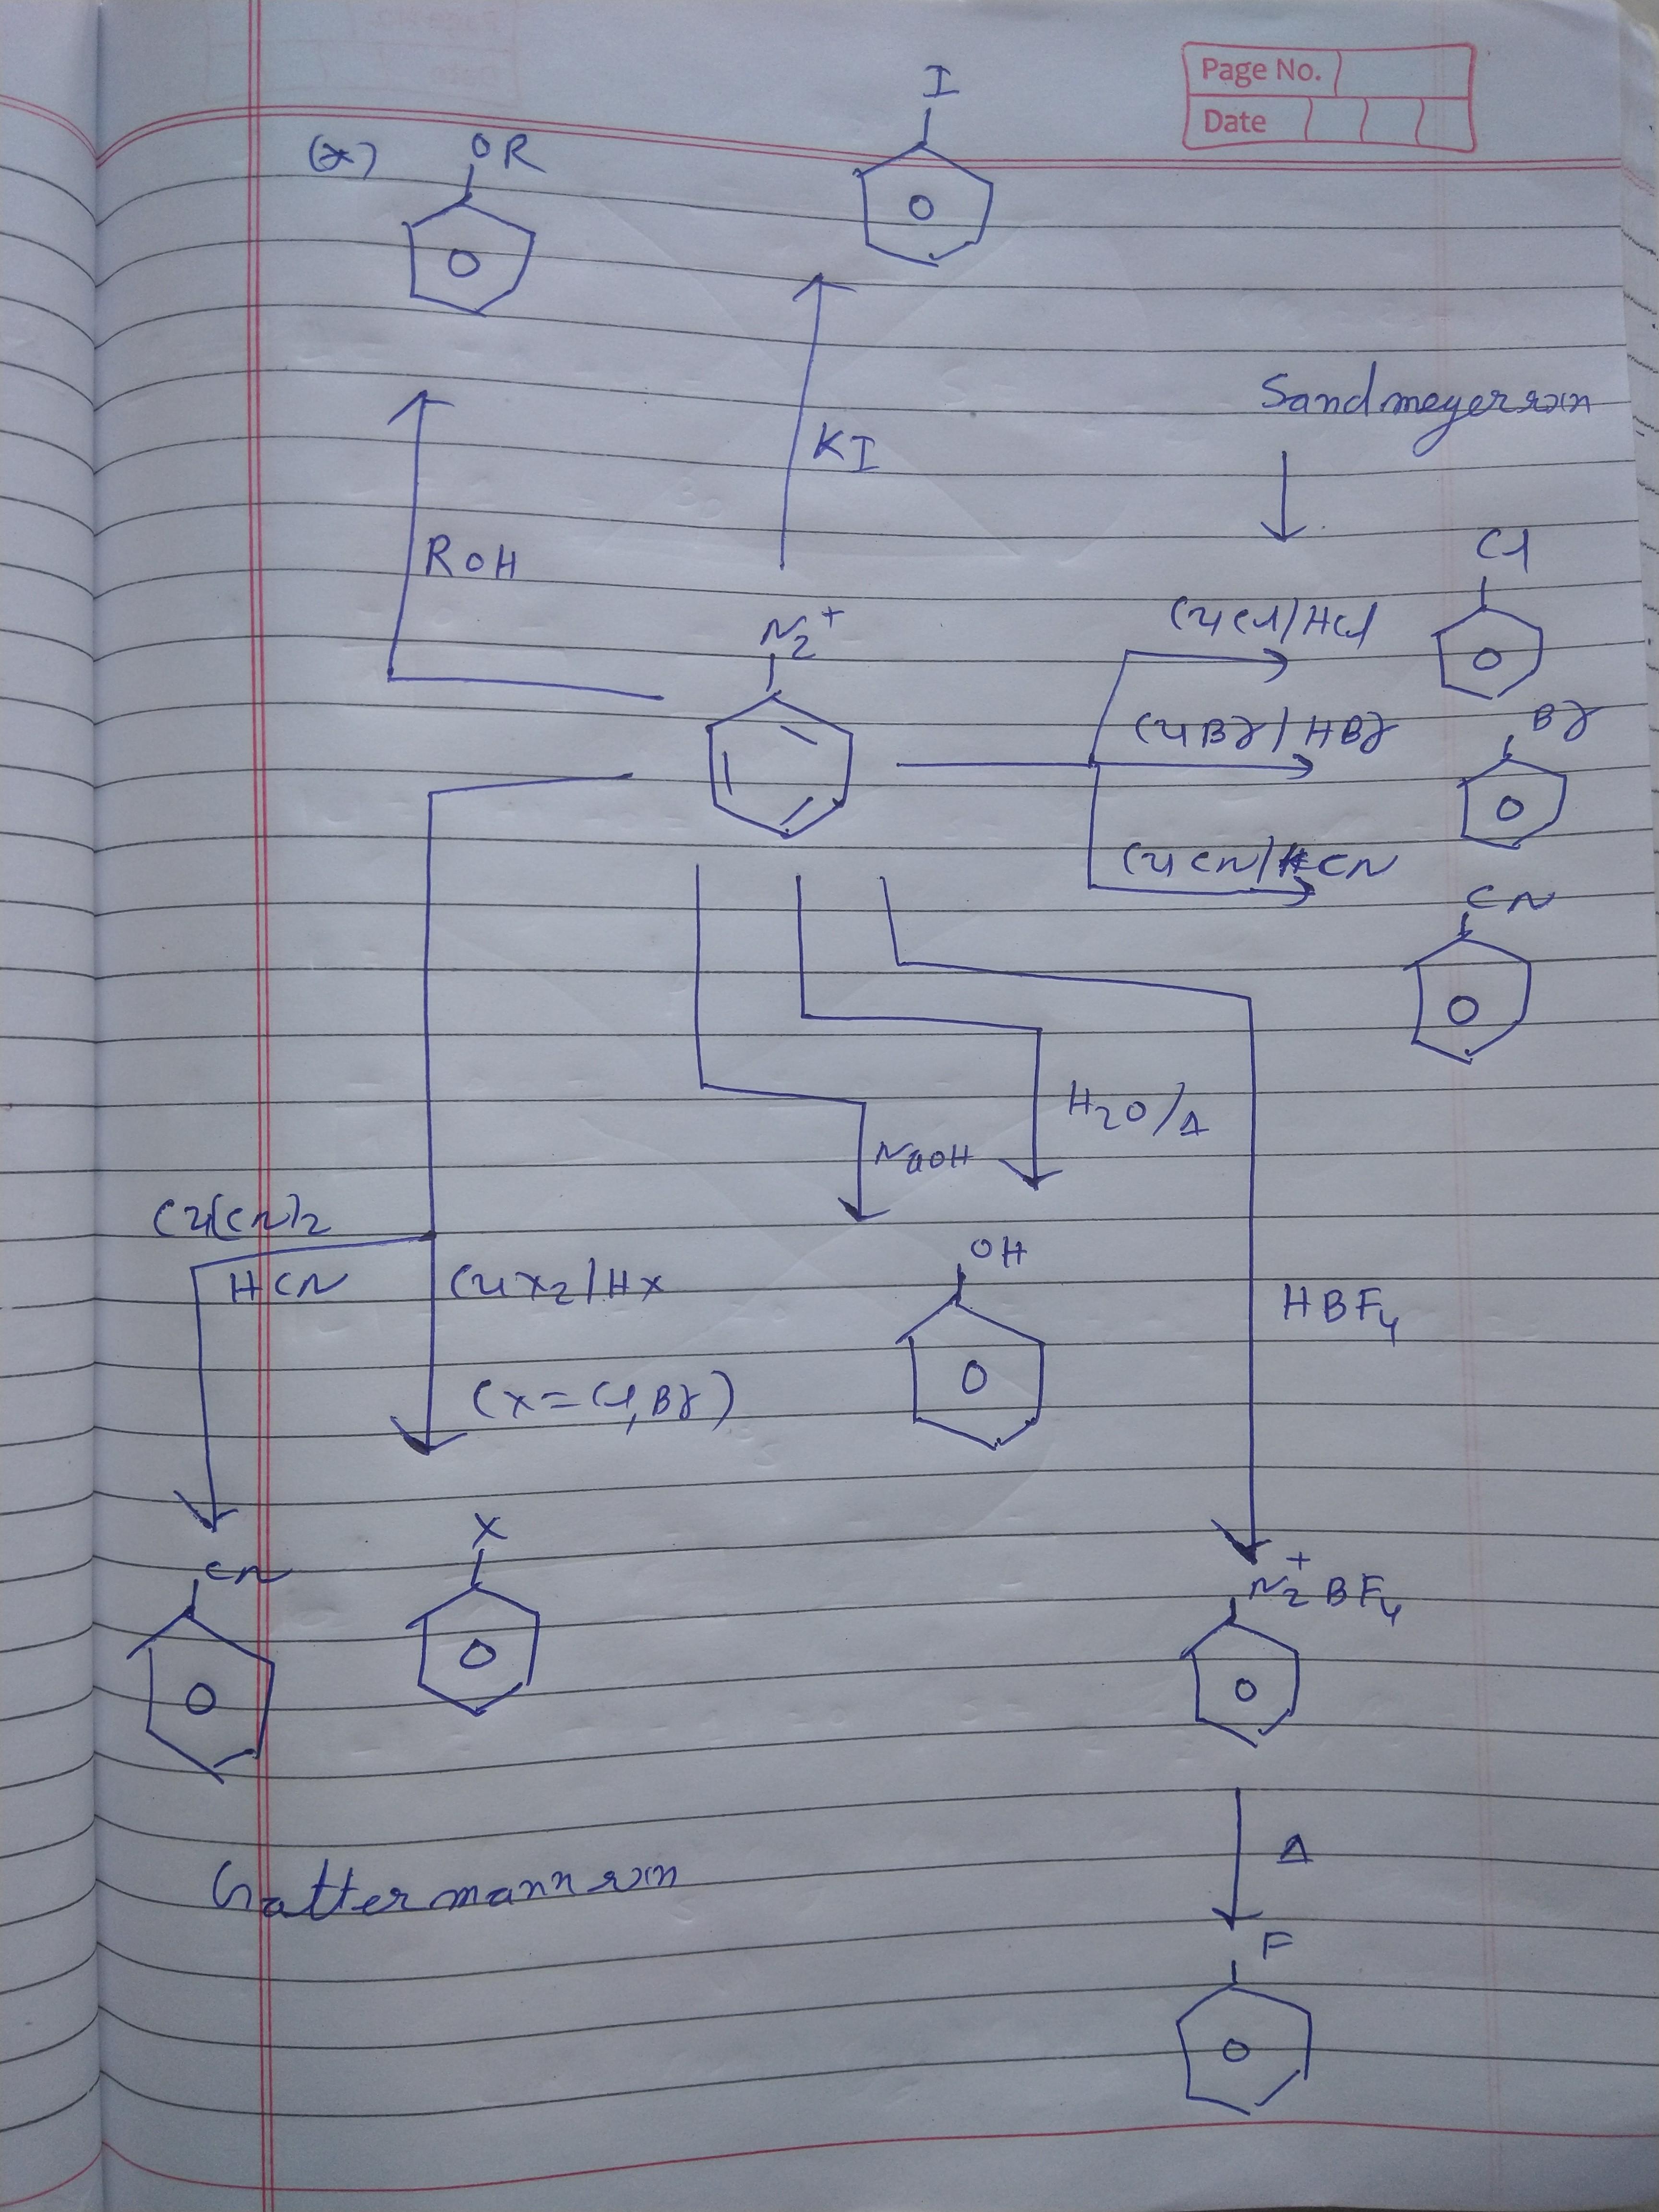 Page No.
Date
I
(*) OR
KI
Sandmeyer rxn
ROH
Cl
N2+
CuCl/HCl
CuBr/HBr
Br
CuCN/KCN
CN
H2O/Δ
NaOH
Cu(CN)2
HCN
CuX2/HX
OH
HBF4
(X=Cl,Br)
X
CN
N2+BF4
Gattermann rxn
Δ
F